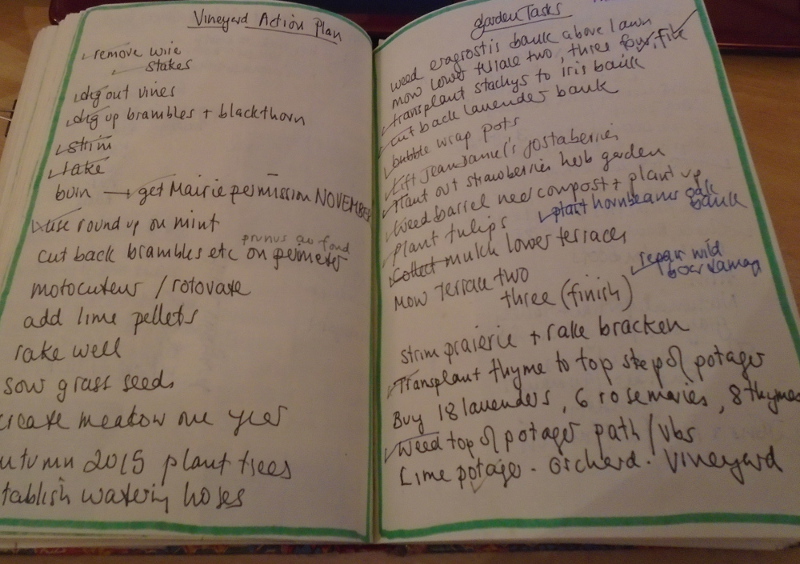 Vineyard Action Plan
remove wire
stakes
dig out vines
dig up brambles + blackthorn
strim
rake
burn → get Mairie permission NOVEMBER
use round up on mint
prunus go fond
cut back brambles etc on perimeter
motoculteur / rotovate
add lime pellets
rake well
sow grass seeds
create meadow one year
utumn 2015 plant trees
tablish watering holes
garden Tasks
weed eragrostis bank above lawn
mow lower terrace two, three four, five
transplant stachys to iris bank
cut back lavender bank
bubble wrap pots
Lift Jean Daniel's jostaberries
Plant out strawberries herb garden
Weed barrel need compost + plant up
plant tulips
plant hornbeams oak bank
Collect mulch lower terraces
repair wild boar damage
Mow terrace two
three (finish)
strim prairie + rake bracken
Transplant thyme to top step of potager
Buy 18 lavenders, 6 rosemaries, 8 thymes
Weed top of potager path / vbs
Lime potager - orchard - Vineyard